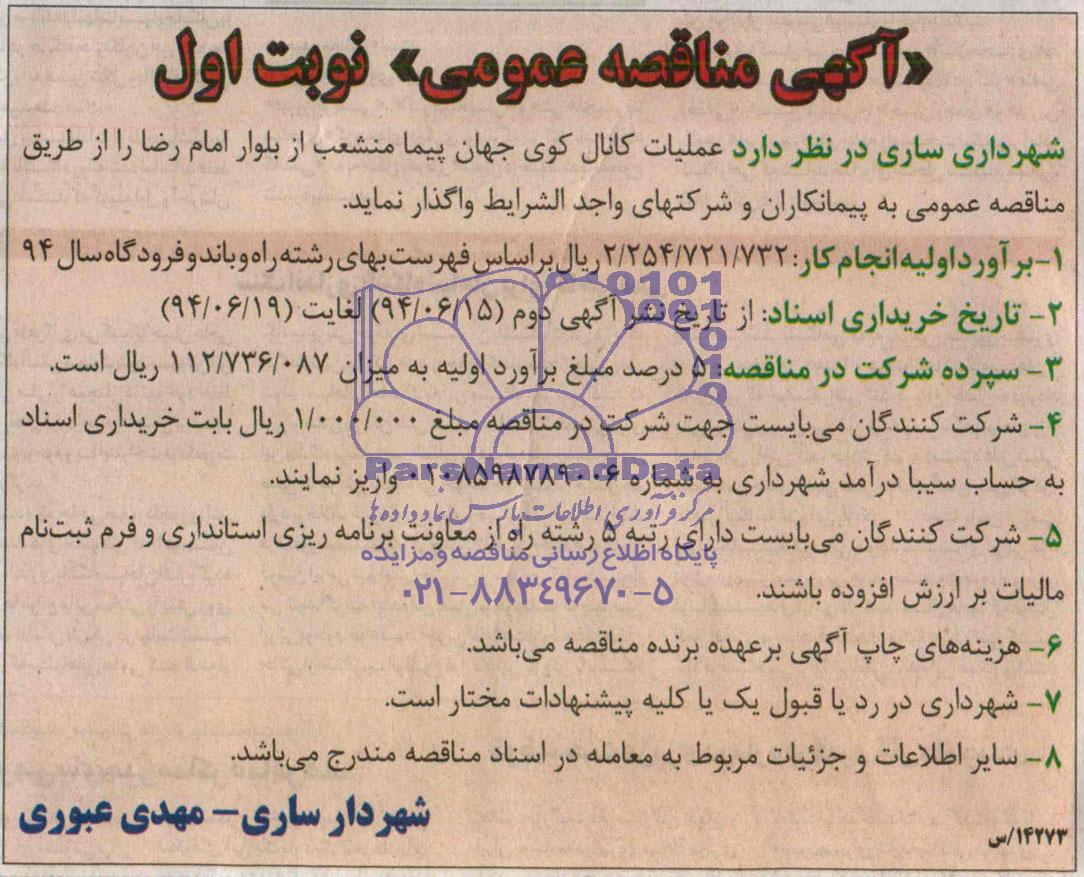 «آگهی مناقصه عمومی» نوبت اول
شهرداری ساری در نظر دارد عملیات کانال کوی جهان پیما منشعب از بلوار امام رضا را از طریق
مناقصه عمومی به پیمانکاران و شرکتهای واجد الشرایط واگذار نماید.
۱- برآورد اولیه انجام کار: ۲/۲۵۴/۷۲۱/۷۳۲ ریال براساس فهرست بهای رشته راه و باند و فرودگاه سال ۹۴
۲- تاریخ خریداری اسناد: از تاریخ نشر آگهی دوم (۹۴/۰۶/۱۵) لغایت (۹۴/۰۶/۱۹)
۳- سپرده شرکت در مناقصه: ۵ درصد مبلغ برآورد اولیه به میزان ۱۱۲/۷۳۶/۰۸۷ ریال است.
۴- شرکت کنندگان می‌بایست جهت شرکت در مناقصه مبلغ ۱/۰۰۰/۰۰۰ ریال بابت خریداری اسناد
به حساب سیبا درآمد شهرداری به شماره ۰۱۰۸۵۹۸۷۸۹۰۰۶ واریز نمایند.
۵- شرکت کنندگان می‌بایست دارای رتبه ۵ رشته راه از معاونت برنامه ریزی استانداری و فرم ثبت‌نام
مالیات بر ارزش افزوده باشند.
۶- هزینه‌های چاپ آگهی برعهده برنده مناقصه می‌باشد.
۷- شهرداری در رد یا قبول یک یا کلیه پیشنهادات مختار است.
۸- سایر اطلاعات و جزئیات مربوط به معامله در اسناد مناقصه مندرج می‌باشد.
شهردار ساری- مهدی عبوری
۱۴۲۷۳/س
ParsNamadData
مرکز فرآوری اطلاعات پارس نماد داده ها
پایگاه اطلاع رسانی مناقصه و مزایده
۰۲۱-۸۸۳۴۹۶۷۰-۵